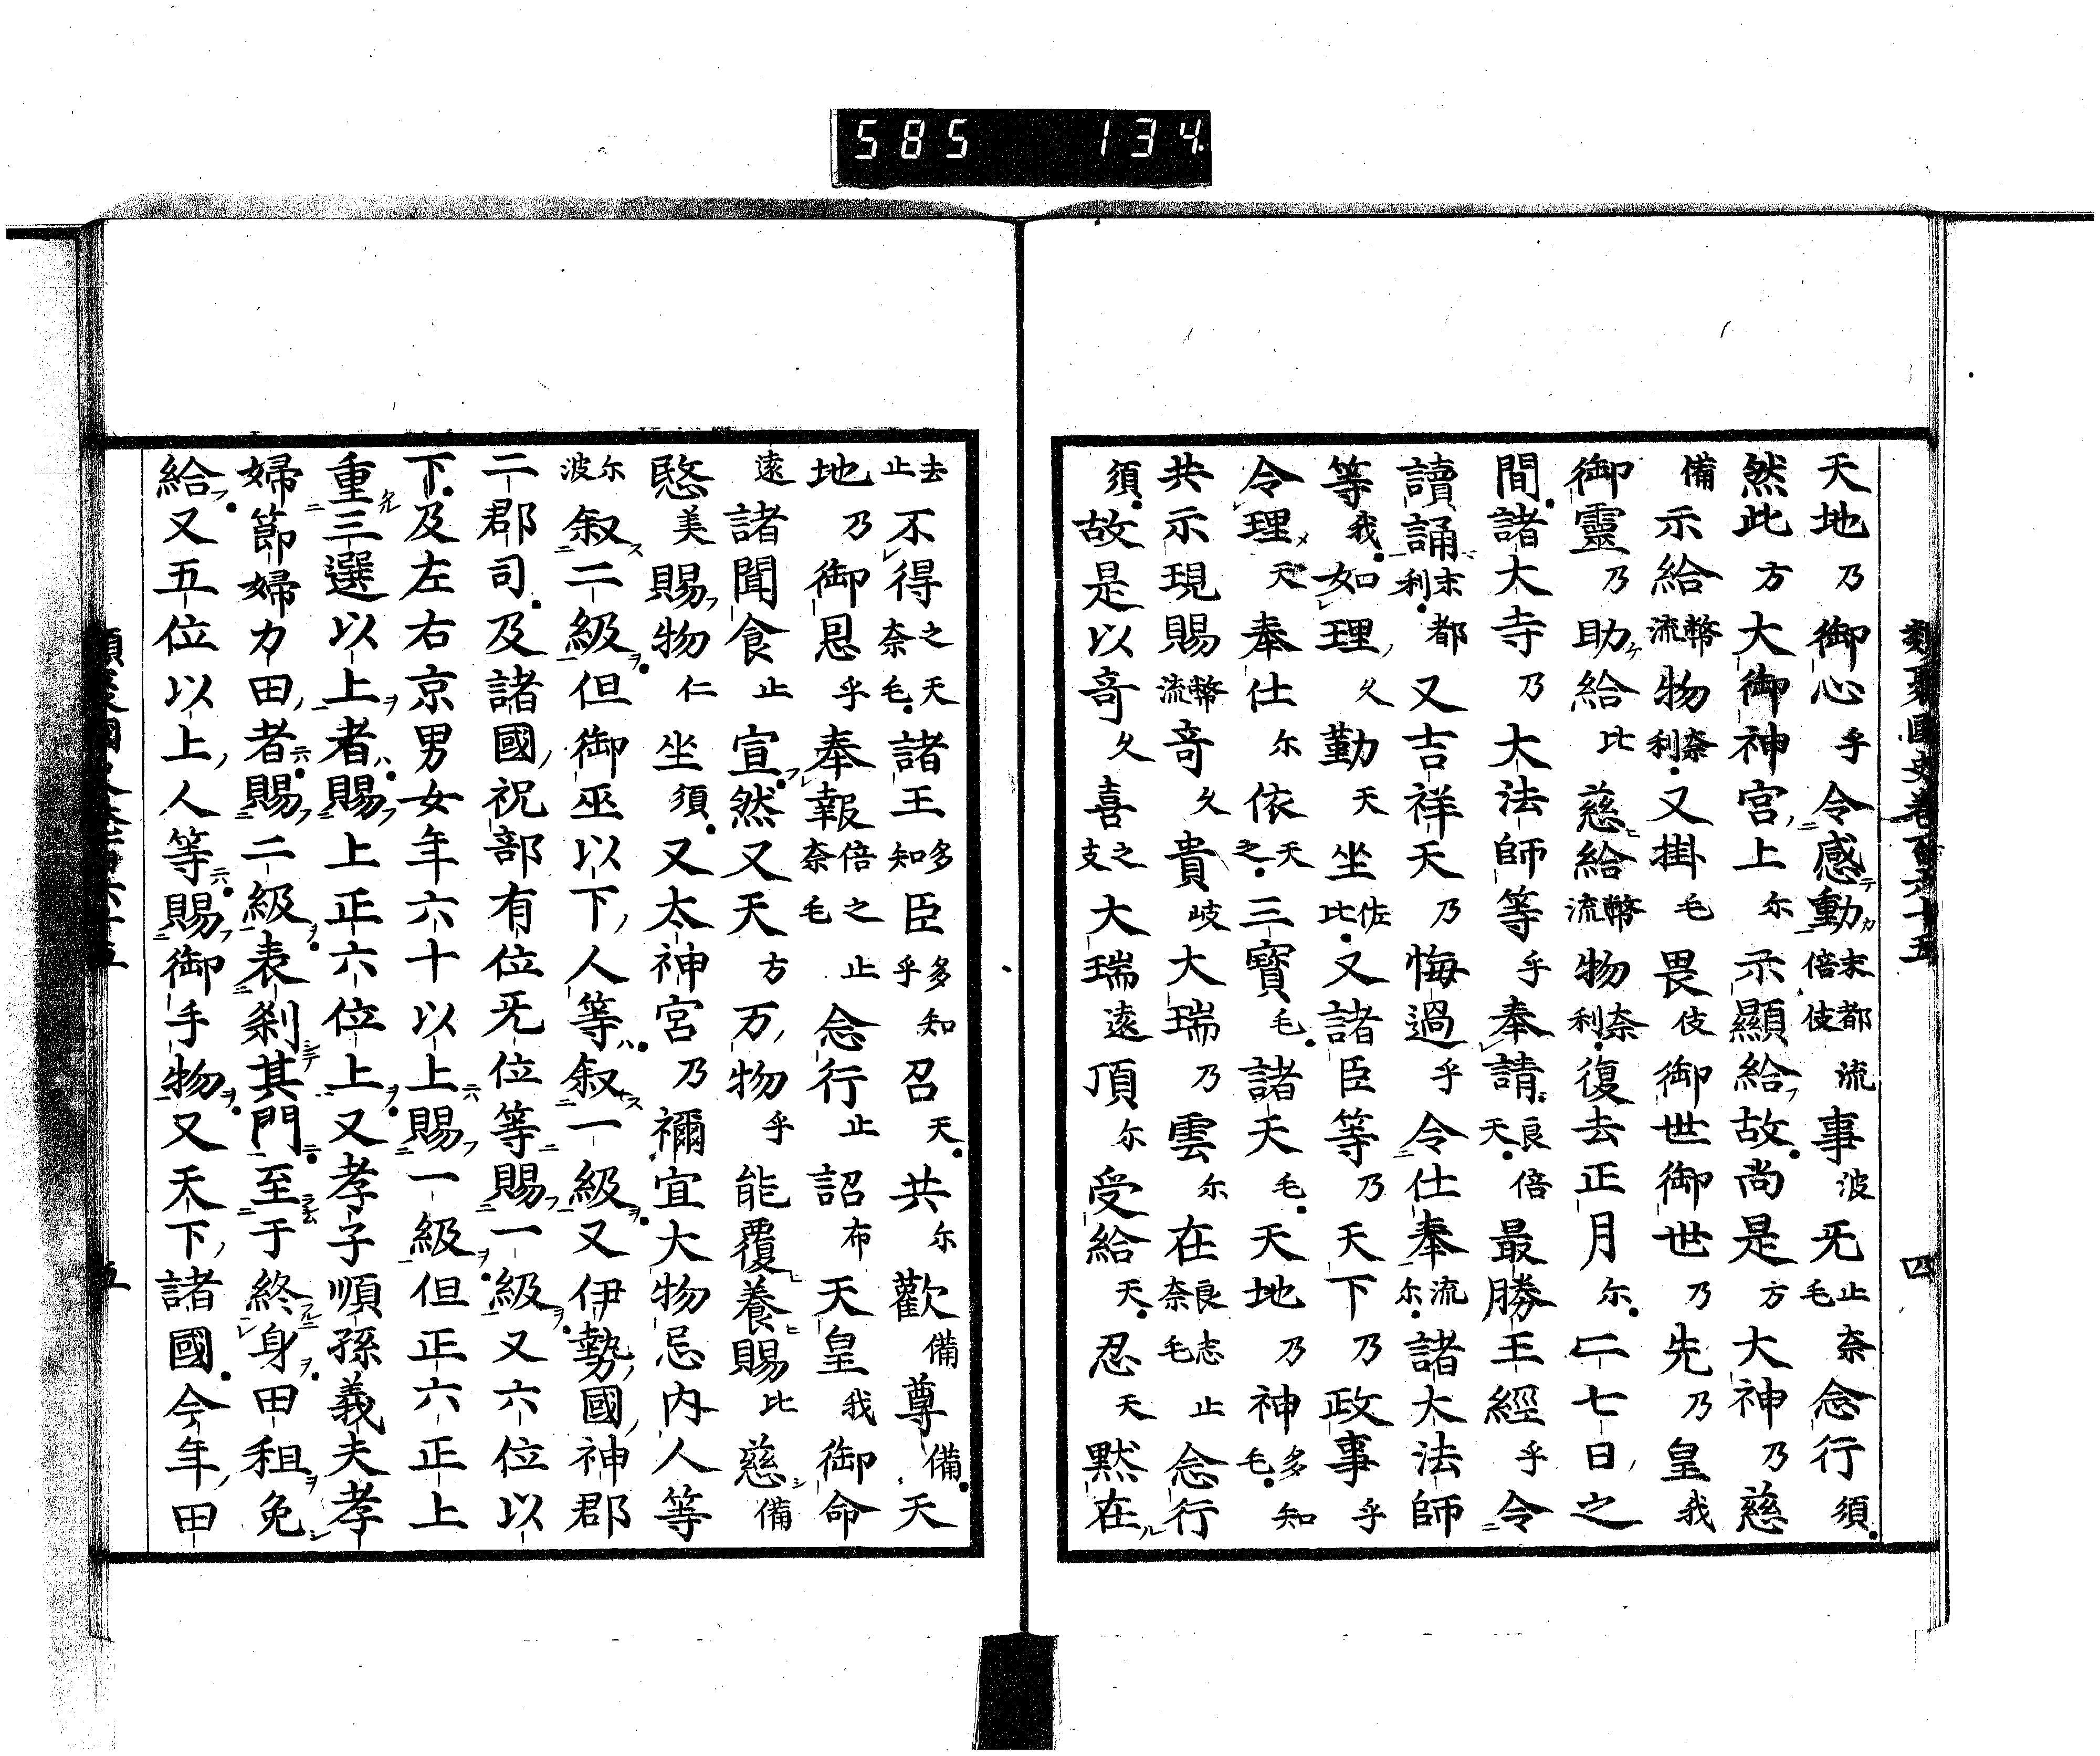 585 134
類聚國史卷百六十五 四
天地乃御心乎令感動末都流倍伎事波无止奈毛念行須
然此方大御神宮上尓示顯給故尚是方大神乃慈
備示給幣流物奈利又掛毛畏伎御世御世乃先乃皇我
御靈乃助給比慈給幣流物奈利復去正月尓二七日之
間諸大寺乃大法師等乎奉請良倍天最勝王經乎令
讀誦末都利又吉祥天乃悔過乎令仕奉流尓諸大法師
等我如理久勤天坐佐比又諸臣等乃天下乃政事乎
令理天奉仕尓依天之三寶毛諸天毛天地乃神多知毛
共示現賜幣流奇久貴岐大瑞乃雲尓在良志止奈毛念行
須故是以奇久喜之支大瑞遠頂尓受給天忍天默在
去止不得之天奈毛諸王多知臣多知乎召天共尓歡備尊備天
地乃御恩乎奉報倍之止奈毛念行止詔布天皇我御命
遠諸聞食止宣然又天方万物乎能覆養賜比慈備
愍美賜物仁坐須又太神宮乃禰宜大物忌内人等
尓波叙二級但御巫以下人等叙一級又伊勢國神郡
二郡司及諸國祝部有位无位等賜一級又六位以
下及左右京男女年六十以上賜一級但正六正上
重三選以上者賜上正六位上又孝子順孫義夫孝
婦節婦力田者賜二級表剎其門至于終身田租免
給又五位以上人等賜御手物又天下諸國今年田
類聚國史卷百六十五 五